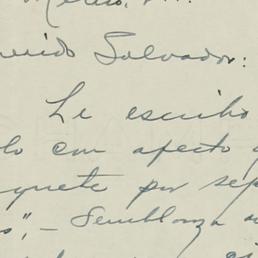 erido Salvador:
Le escribo
lo con afecto
quete por sep
o", - Semblanza